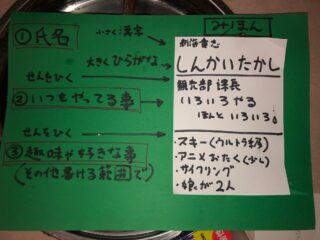 みほん
①氏名
小さく:漢字
大きくひらがな
せんをひく
②いつもやってる事
せんをひく
③趣味や好きな事
(その他書ける範囲で)
しんかいたかし
観光部 課長
いろいろやる
ほんと いろいろ。
・スキー(ウルトラ級)
・アニメおたく(少し)
・サイクリング
・娘が2人